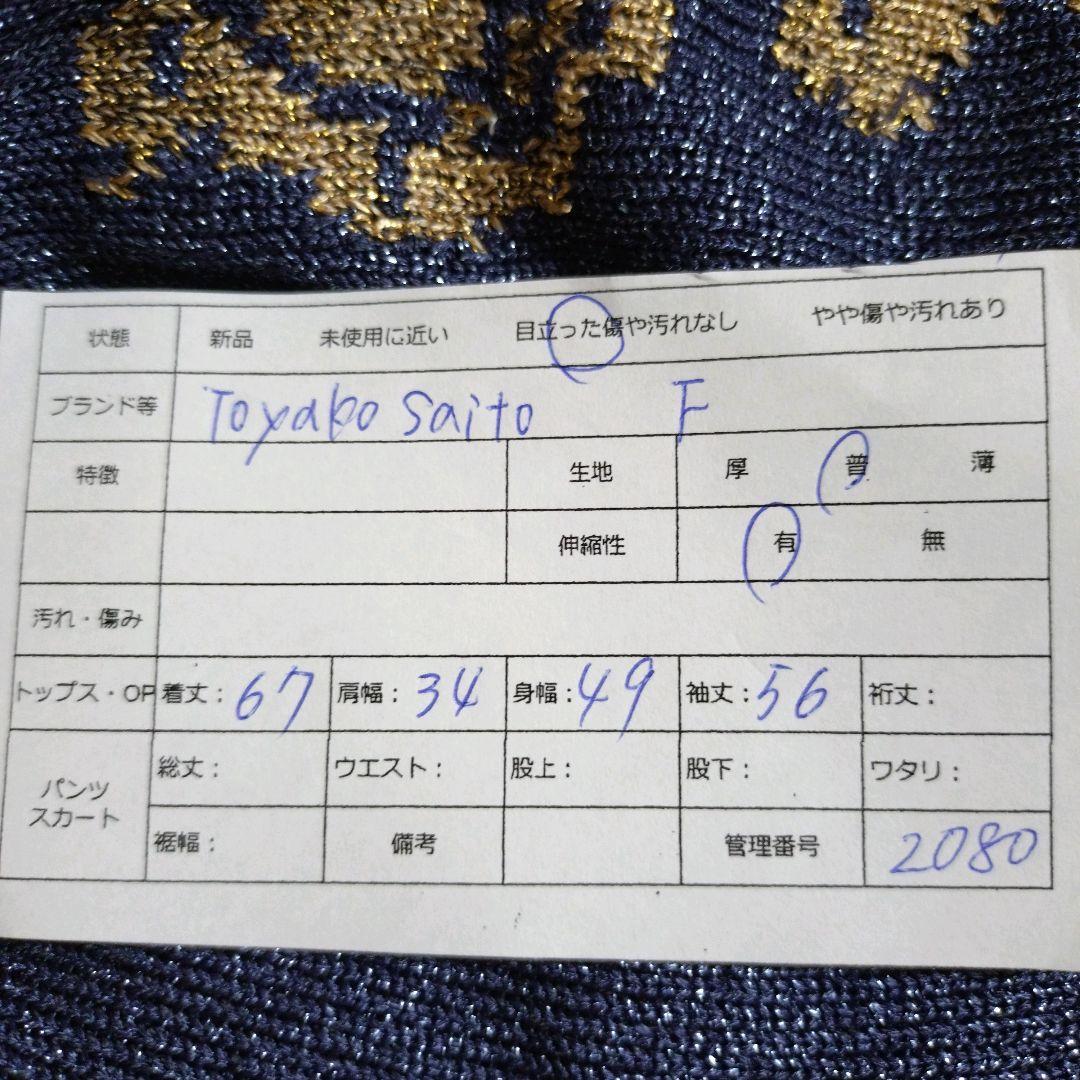 状態 新品 未使用に近い 目立った傷や汚れなし やや傷や汚れあり
ブランド等 Toyabo Saito F
特徴 生地 厚 普 薄
伸縮性 有 無
汚れ・傷み
トップス・OP 着丈:67 肩幅:34 身幅:49 袖丈:56 裄丈:
パンツ スカート 総丈: ウエスト: 股上: 股下: ワタリ:
裾幅: 備考 管理番号 2080